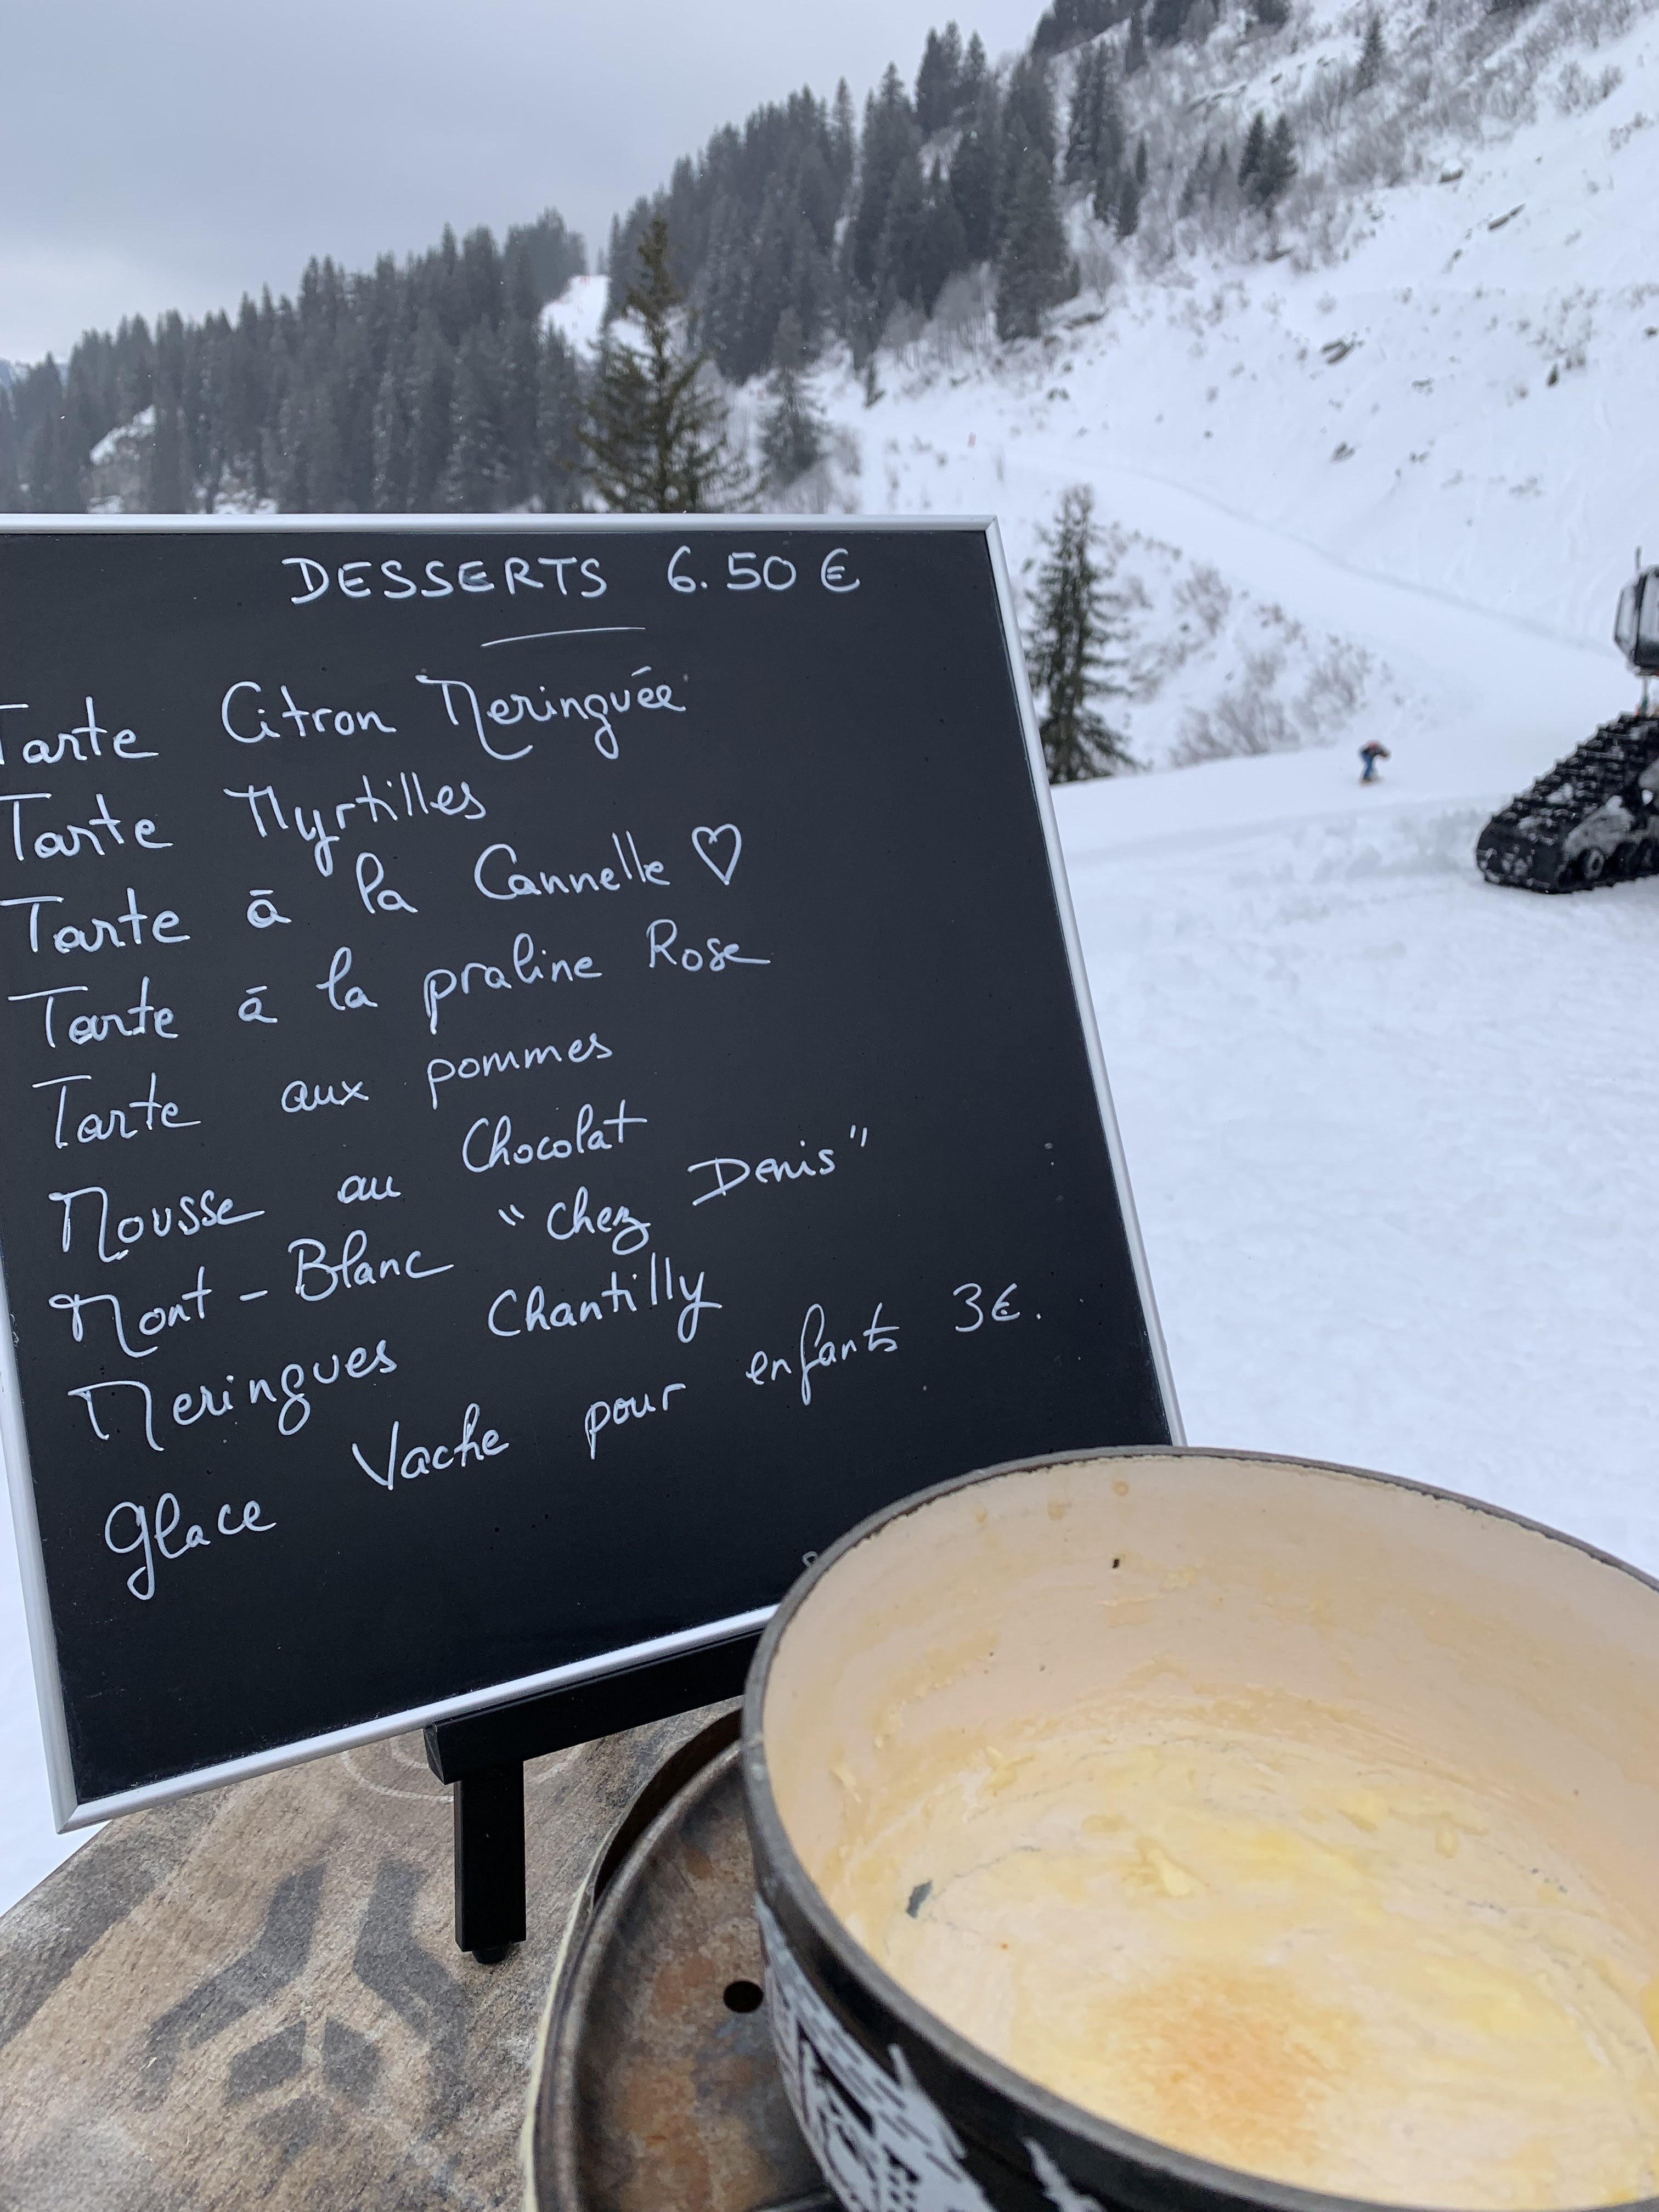 DESSERTS 6.50 €
Tarte Citron Meringuée
Tarte Myrtilles
Tarte à la Cannelle ♡
Tarte à la praline Rose
Tarte aux pommes
Mousse au Chocolat
Mont-Blanc "chez Denis"
Meringues Chantilly
Glace Vache pour enfants 3€.